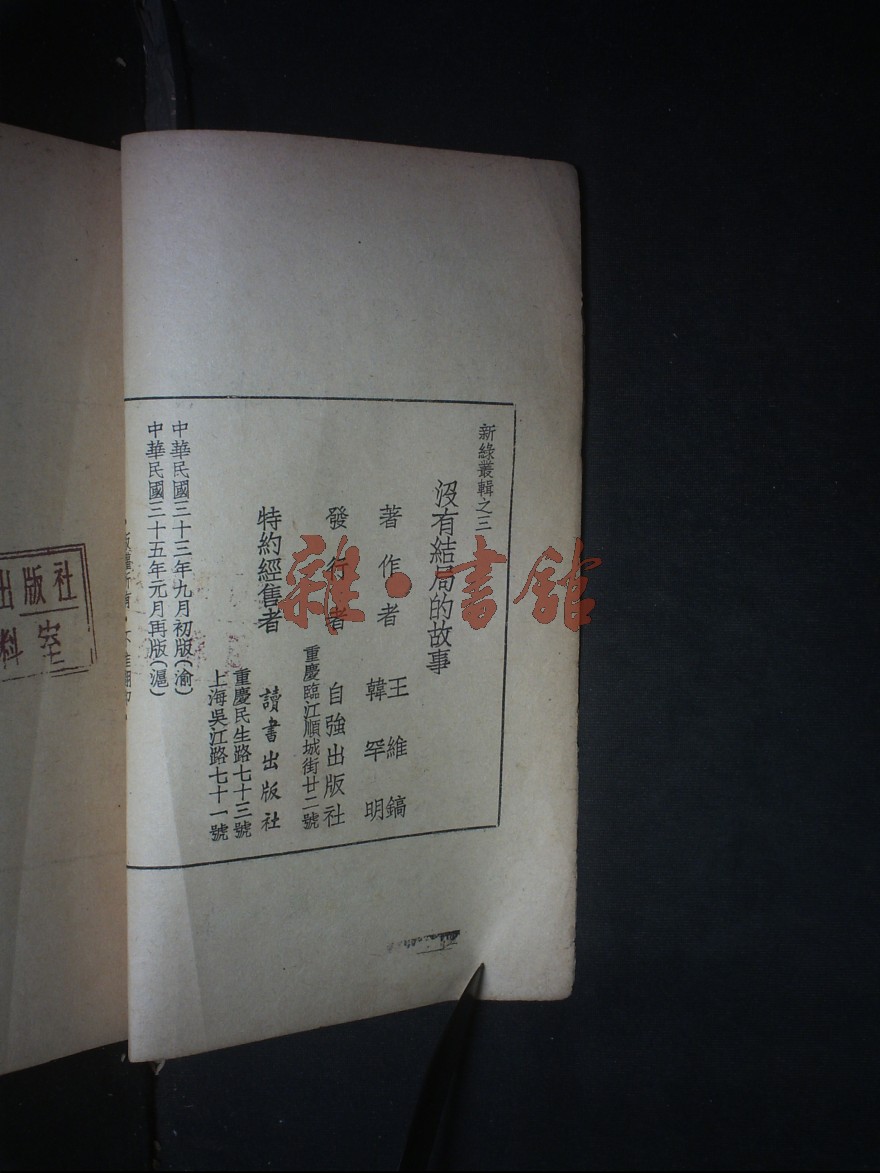 新綠叢輯之三
没有結局的故事
著作者
王維鎬
韓罕明
發行者
自強出版社
重慶臨江順城街廿二號
特約經售者
讀書出版社
重慶民生路七十三號
上海吳江路七十一號
中華民國三十三年九月初版(渝)
中華民國三十五年元月再版(滬)
出版社
料室
雜·書館